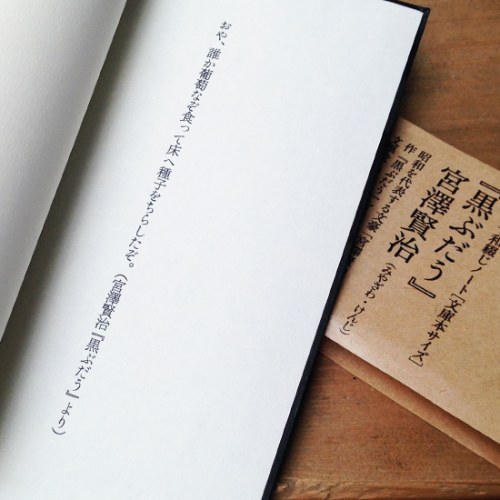 おや、誰か葡萄なぞ食って床へ種子をちらしたぞ。（宮澤賢治『黒ぶだう』より）
和綴じノート［文庫本サイズ］
『黒ぶだう』
宮澤賢治
（みやざわ けんじ）
作
昭和を代表する文豪
『黒ぶだう』